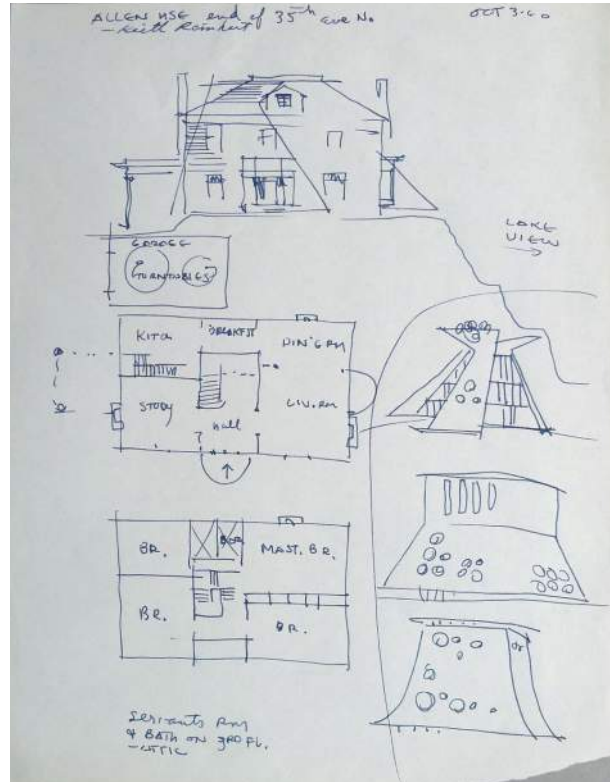 ALLEN HSE end of 35th ave No.
OCT 3-60
- Keith
LAKE
VIEW
GARAGE
TURNTABLES
KITCH
BREAKFST
DIN'G RM
STUDY
Hall
LIV. RM
BR.
MAST. BR.
BR.
BR.
Servants Rm
& BATH ON 3RD FL.
- ATTIC